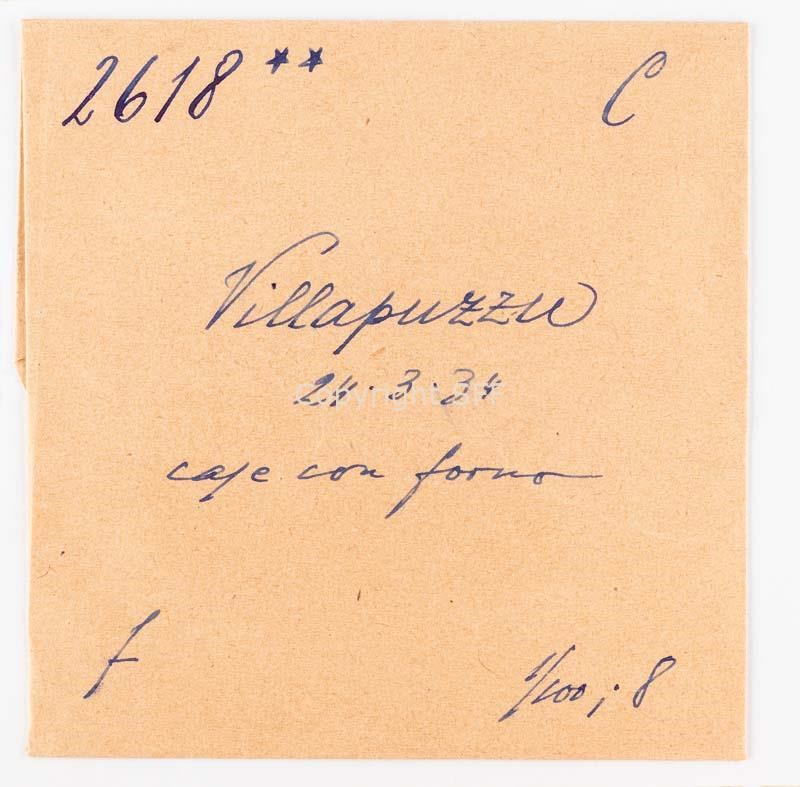 2618** C
Villapuzzu
24.3.34
Copyright SFF
case con forno
f
1/100; 8